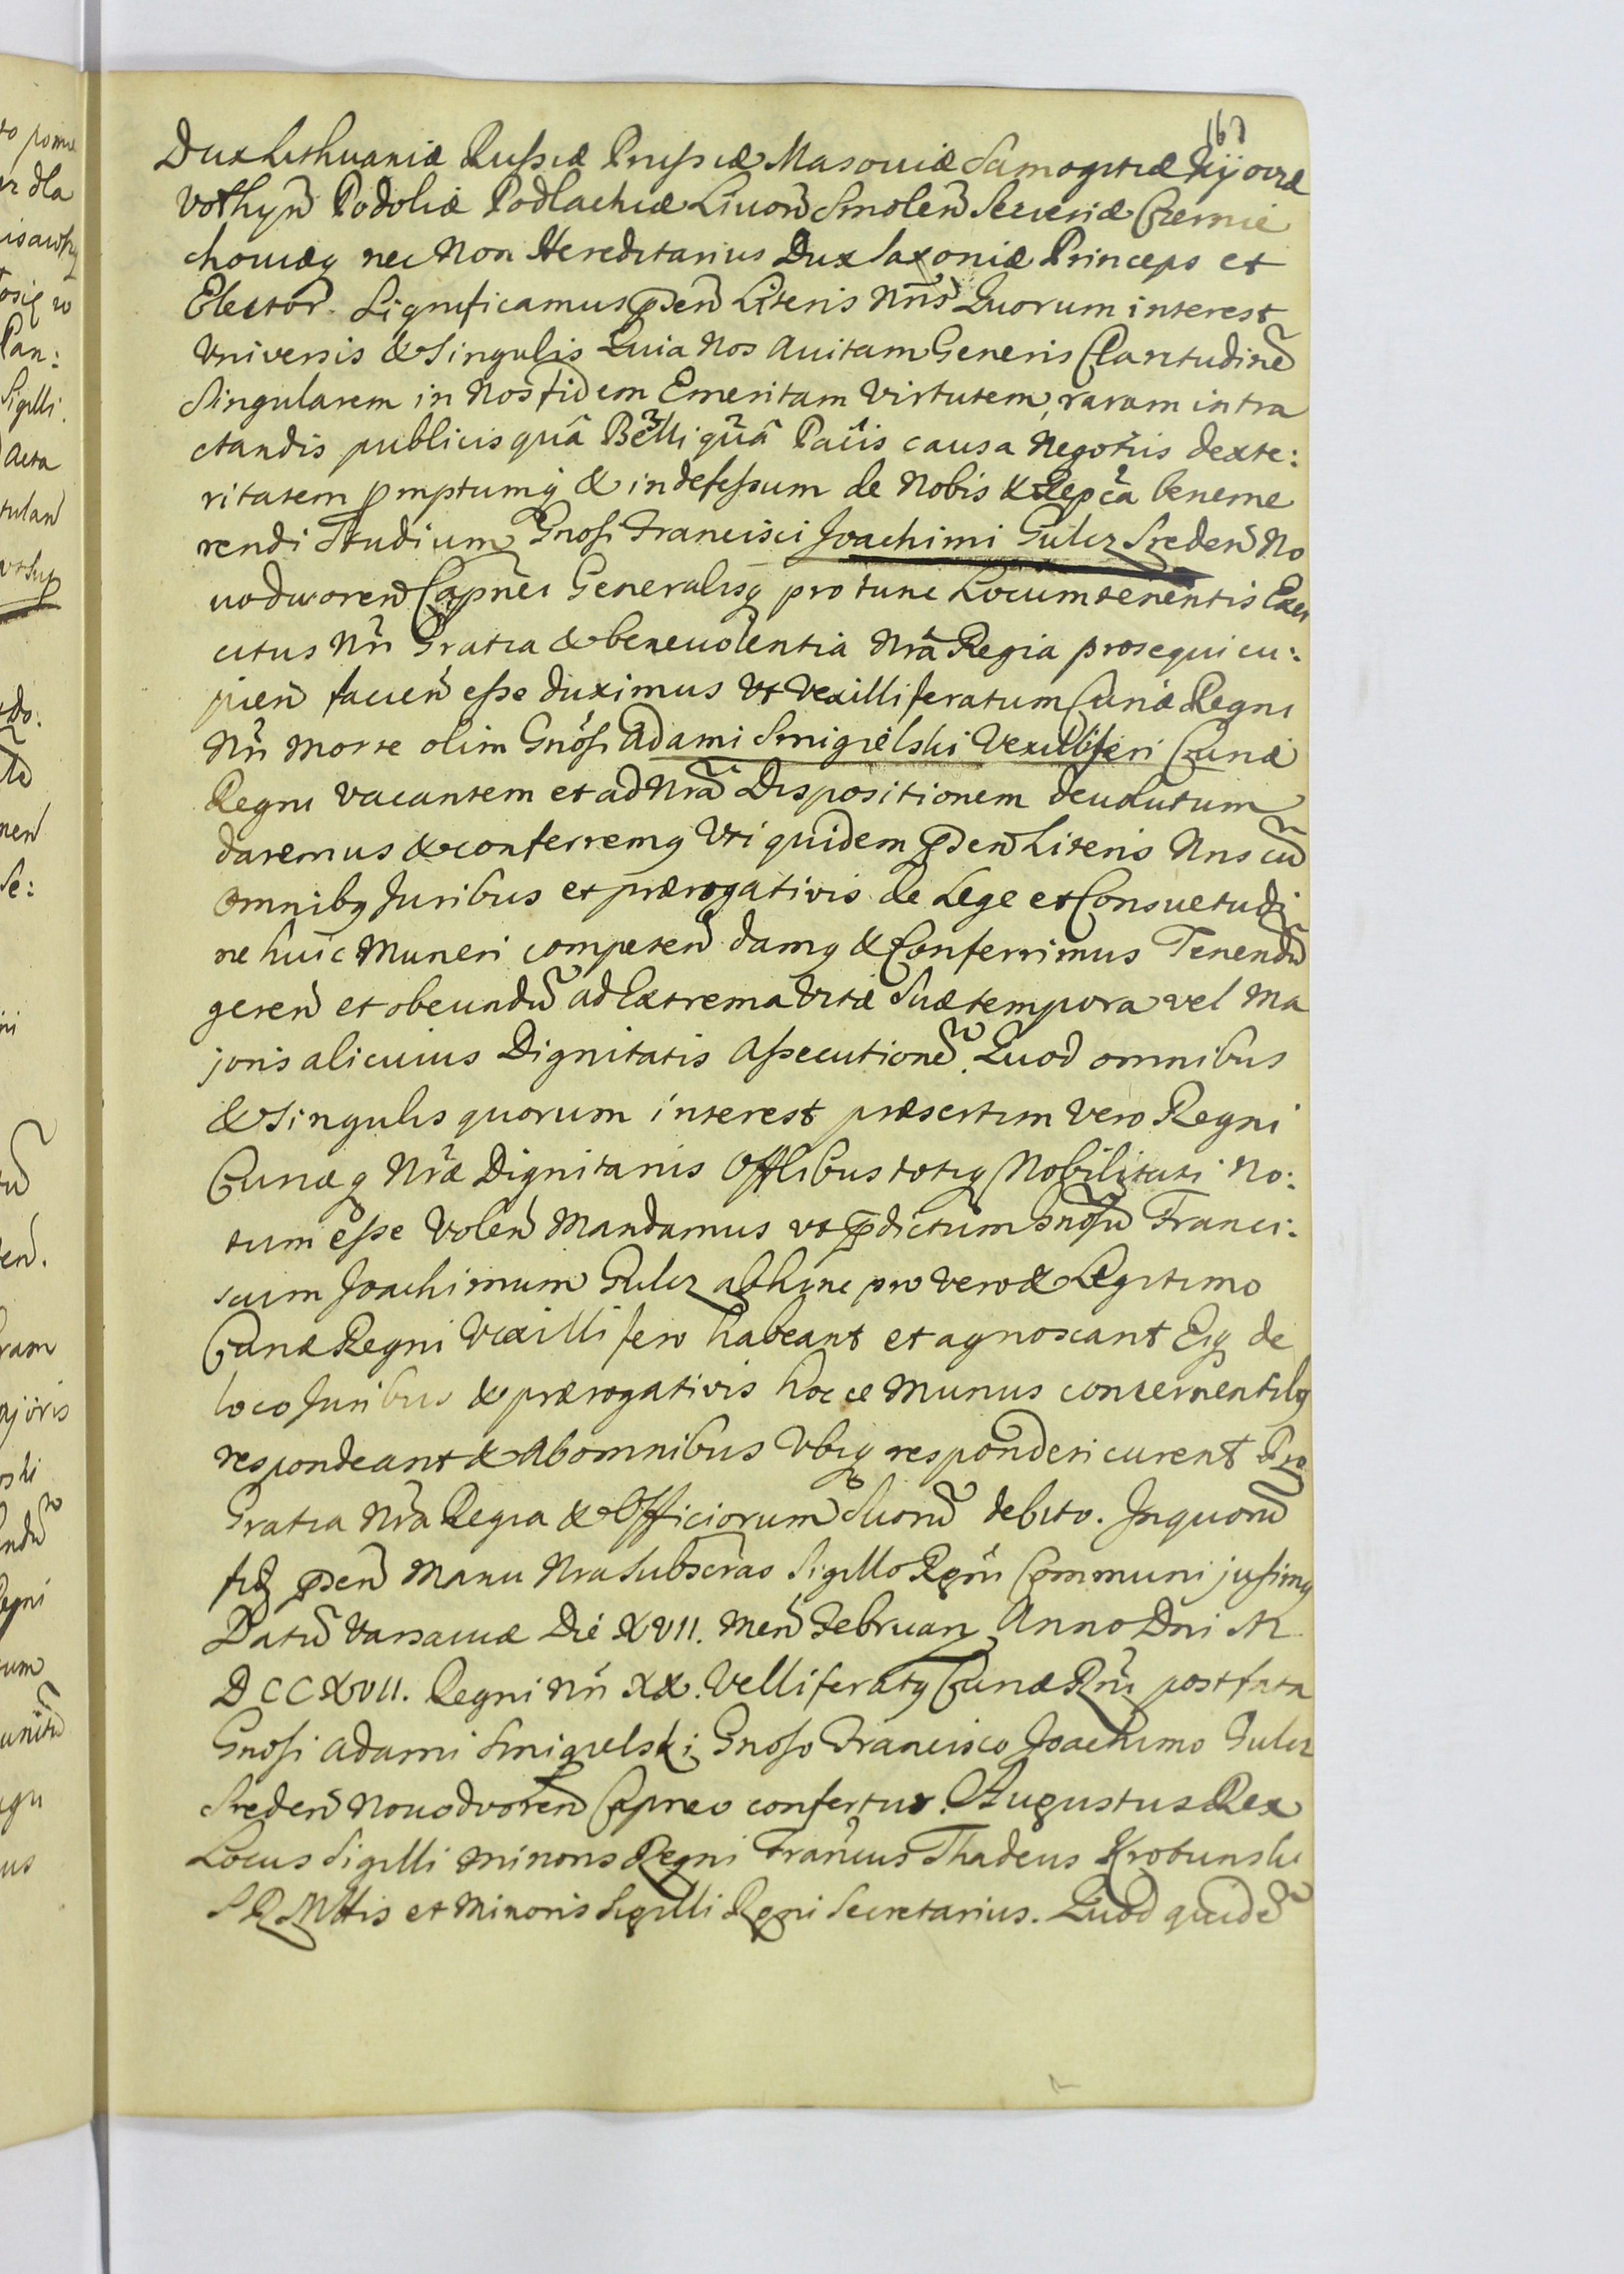 167
Dux Lithuaniæ Russiæ Prussiæ Masoviæ Samogitiæ Kijoviæ
Volhyn̄ Podoliæ Podlachiæ Livon̄ Smolen̄ Severiæ Czernie
choviæq nec Non Hereditarius Dux Saxoniæ Princeps et
Elector. Significamus p̄sen̄ Literis Nr̄is Quorum interest
Universis & Singulis Quia Nos Avitam Generis Claritudinē
Singularem in Nos fidem Emeritam Virtutem, raram in tra
ctandis publicis quâ Belli quâ Pacis causa Negotiis dexte:
ritatem promptumq & indefessum de Nobis & Repca beneme
rendi Studium Gnosi Francisci Joachimi Gultz Sreden̄ No
vodvoren̄ Capnei Generalisq pro tunc Locumtenentis Exer
citus Nri Gratia & benevolentia Nrã Regia prosequi cu:
pien̄ facien̄ esse duximus Ut Vexilliferatum Curiæ Regni
Nri Morte olim Gnosi Adami Smigielski Vexilliferi Curiæ
Regni Vacantem et ad Nrã Dispositionem devolutum
daremus & conferremq Uti quidem p̄sen̄ Literis Nris cū
Omnibq Juribus et prærogativis de Lege et Consuetudi
ne huic Muneri competen̄ damq & Conferrimus Tenendū
geren̄ et obeundū ad Extrema Vitæ Suæ tempora vel Ma
joris alicuius Dignitatis Assecutionē. Quod omnibus
& Singulis quorum interest præsertim Vero Regni
Curiæq Nræ Dignitariis Offlibus totiq Nobilitati No:
tum esse Volen̄ Mandamus ut p̄dictum Gnosū Franci:
scum Joachimum Gultz abhinc pro Vero & Legitimo
Curiæ Regni Vexillifero habeant et agnoscant Eiq de
loco Juribus & prærogativis hocce Munus concernentibq
respondeant & Ab omnibus Ubiq responderi curent Pro
Gratia Nra Regia & Officiorum Suorū debito. In quorū
fid p̄sen̄ Manu Nra Subscras Sigillo Regni Communi jussimq
Datū Varsaviæ Die XVII. Men̄ Februarij Anno Dni M
DCCXVII. Regni Nri XX. Velliferatq Curiæ Rni post fata
Gnosi Adami Smigielski Gnoso Francisco Joachimo Gultz
Sreden̄ Novodvoren̄ Capneo confertur. Augustus Rex
Locus Sigilli Minoris Regni Franćus Thadeus Krobanski
S R Mttis et Minoris Sigilli Rgni Secretarius. Quod quidē